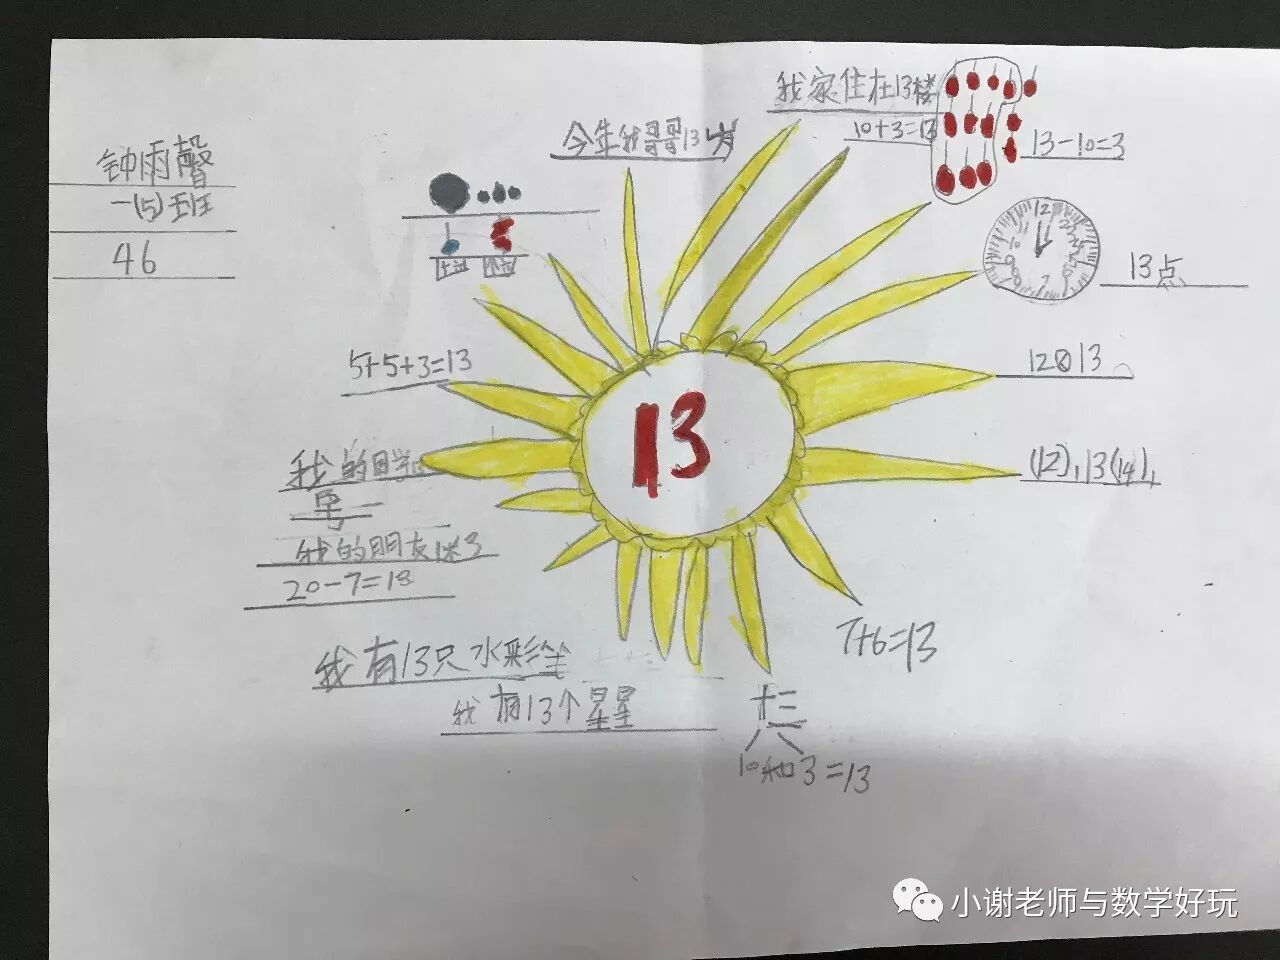 钟雨馨
一(5)班
46
今年我哥哥13岁
我家住在13楼
10+3=13
13-10=3
13点
12
13
(12),13(14),
7+6=13
十三
10和3=13
我有13个星星
我有13只水彩笔
20-7=13
我的朋友
我的同学
号
5+5+3=13
十 个
13
小谢老师与数学好玩